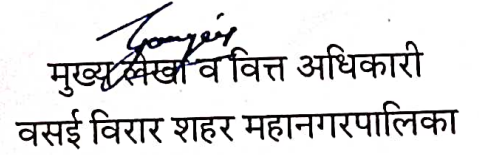 मुख्य लेखा व वित्त अधिकारी
वसई विरार शहर महानगरपालिका